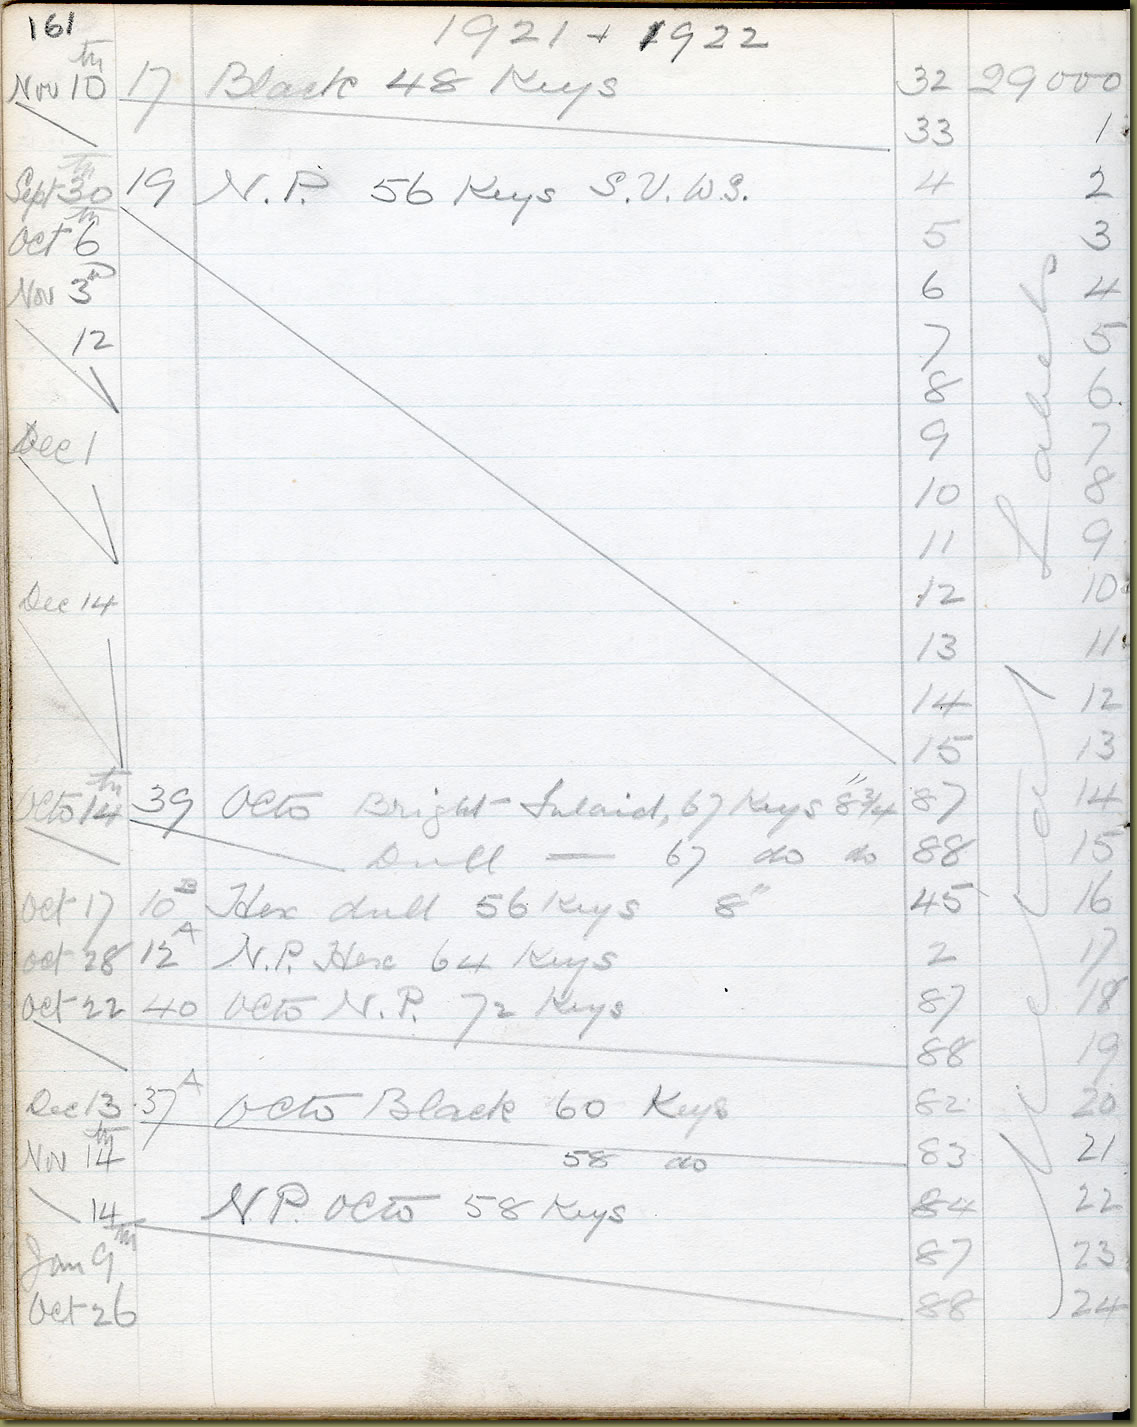 161
1921 + 1922
Nov 10th 17 Black 48 Keys 32 29000
33 1
Sept 30th 19 N.P. 56 Keys S.V.W.S. 4 2
Oct 6th 5 3
Nov 3rd 6 4
12 7 5
8 6
Dec 1 9 7
10 8
11 9
Dec 14 12 10
13 11
14 12
15 13
Octo 14th 39 Octo Bright Inlaid, 67 Keys 8¾" 87 14
Dull — 67 do do 88 15
Oct 17 10B Hex dull 56 Keys 8" 45 16
Oct 28 12A N.P. Hex 64 Keys 2 17
Oct 22 40 Octo N.P. 72 Keys 87 18
88 19
Dec 13 37A Octo Black 60 Keys 82 20
Nov 14th 58 do 83 21
14 N.P. Octo 58 Keys 84 22
Jan 9th 87 23
Oct 26 88 24
Labels